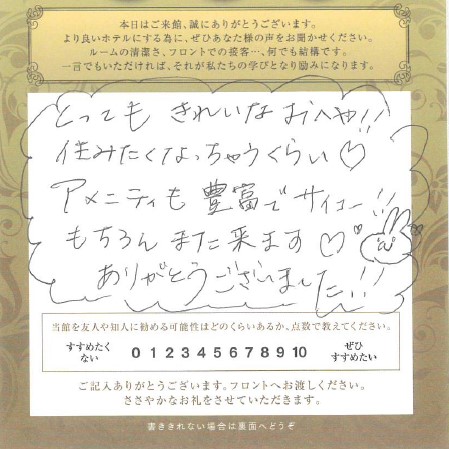 本日はご来館、誠にありがとうございます。
より良いホテルにする為に、ぜひあなた様の声をお聞かせください。
ルームの清潔さ、フロントでの接客…、何でも結構です。
一言でもいただければ、それが私たちの学びとなり励みになります。
とっても きれいな おへや!!
住みたくなっちゃうくらい♡
アメニティも 豊富で サイコー!!
もちろん また 来ます ♡
ありがとうございました!!
当館を友人や知人に勧める可能性はどのくらいあるか、点数で教えてください。
すすめたくない 0 1 2 3 4 5 6 7 8 9 10 ぜひすすめたい
ご記入ありがとうございます。フロントへお渡しください。
ささやかなお礼をさせていただきます。
書ききれない場合は裏面へどうぞ